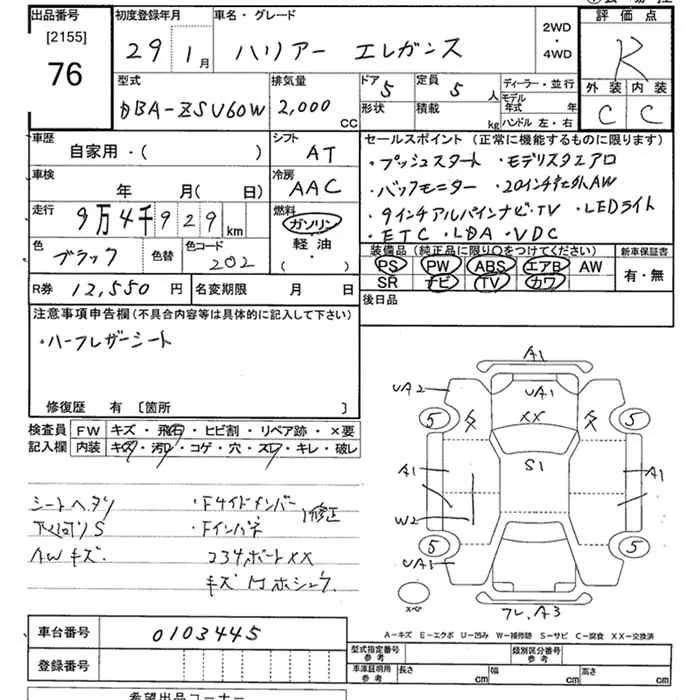 出品番号
[2155]
76
初度登録年月
29年1月
車名・グレード
ハリアー エレガンス
2WD
・
4WD
評価点
R
外装 内装
C C
型式
DBA-ZSU60W
排気量
2,000
CC
ドア
5
形状
定員
5人
積載
kg
ディーラー・並行
モデル
年式 年
ハンドル 左・右
車歴
自家用・( )
シフト
AT
車検
年 月( 日)
冷房
AAC
走行
9万4千929
km
燃料
ガソリン
軽油
( )
色
ブラック
色替
色コード
202
R券
12,550円
名変期限 月 日
セールスポイント (正常に機能するものに限ります)
・プッシュスタート ・モデリスタエアロ
・バックモニター ・20インチ社外AW
・9インチアルパインナビ・TV ・LEDライト
・ETC ・LDA ・VDC
装備品 (純正品に限り○をつけてください)
PS PW ABS エアB AW
SR ナビ TV カワ
新車保証書
有・無
後日品
注意事項申告欄(不具合内容等は具体的に記入して下さい)
・ハーフレザーシート
修復歴 有 〔箇所 〕
検査員
記入欄
FW キズ・飛石・ヒビ割・リペア跡・×要
内装 キズ・汚れ・コゲ・穴・スレ・キレ・破レ
シートヘタリ
下廻りS
AWキズ
・Fサイドメンバー
・Fインパネ
修正
コアサポートXX
A1
UA2
UA1
XX
5
5
S1
A1
A1
W2
5
5
UA1
スペア
フレ,A3
A-キズ E-エクボ U-凹み W-補修跡 S-サビ C-腐食 XX-交換済
車台番号
0103445
登録番号
型式指定番号
参考
類別区分番号
参考
車庫証明用
参考
長さ cm
幅 cm
高さ cm
希望出品コーナー